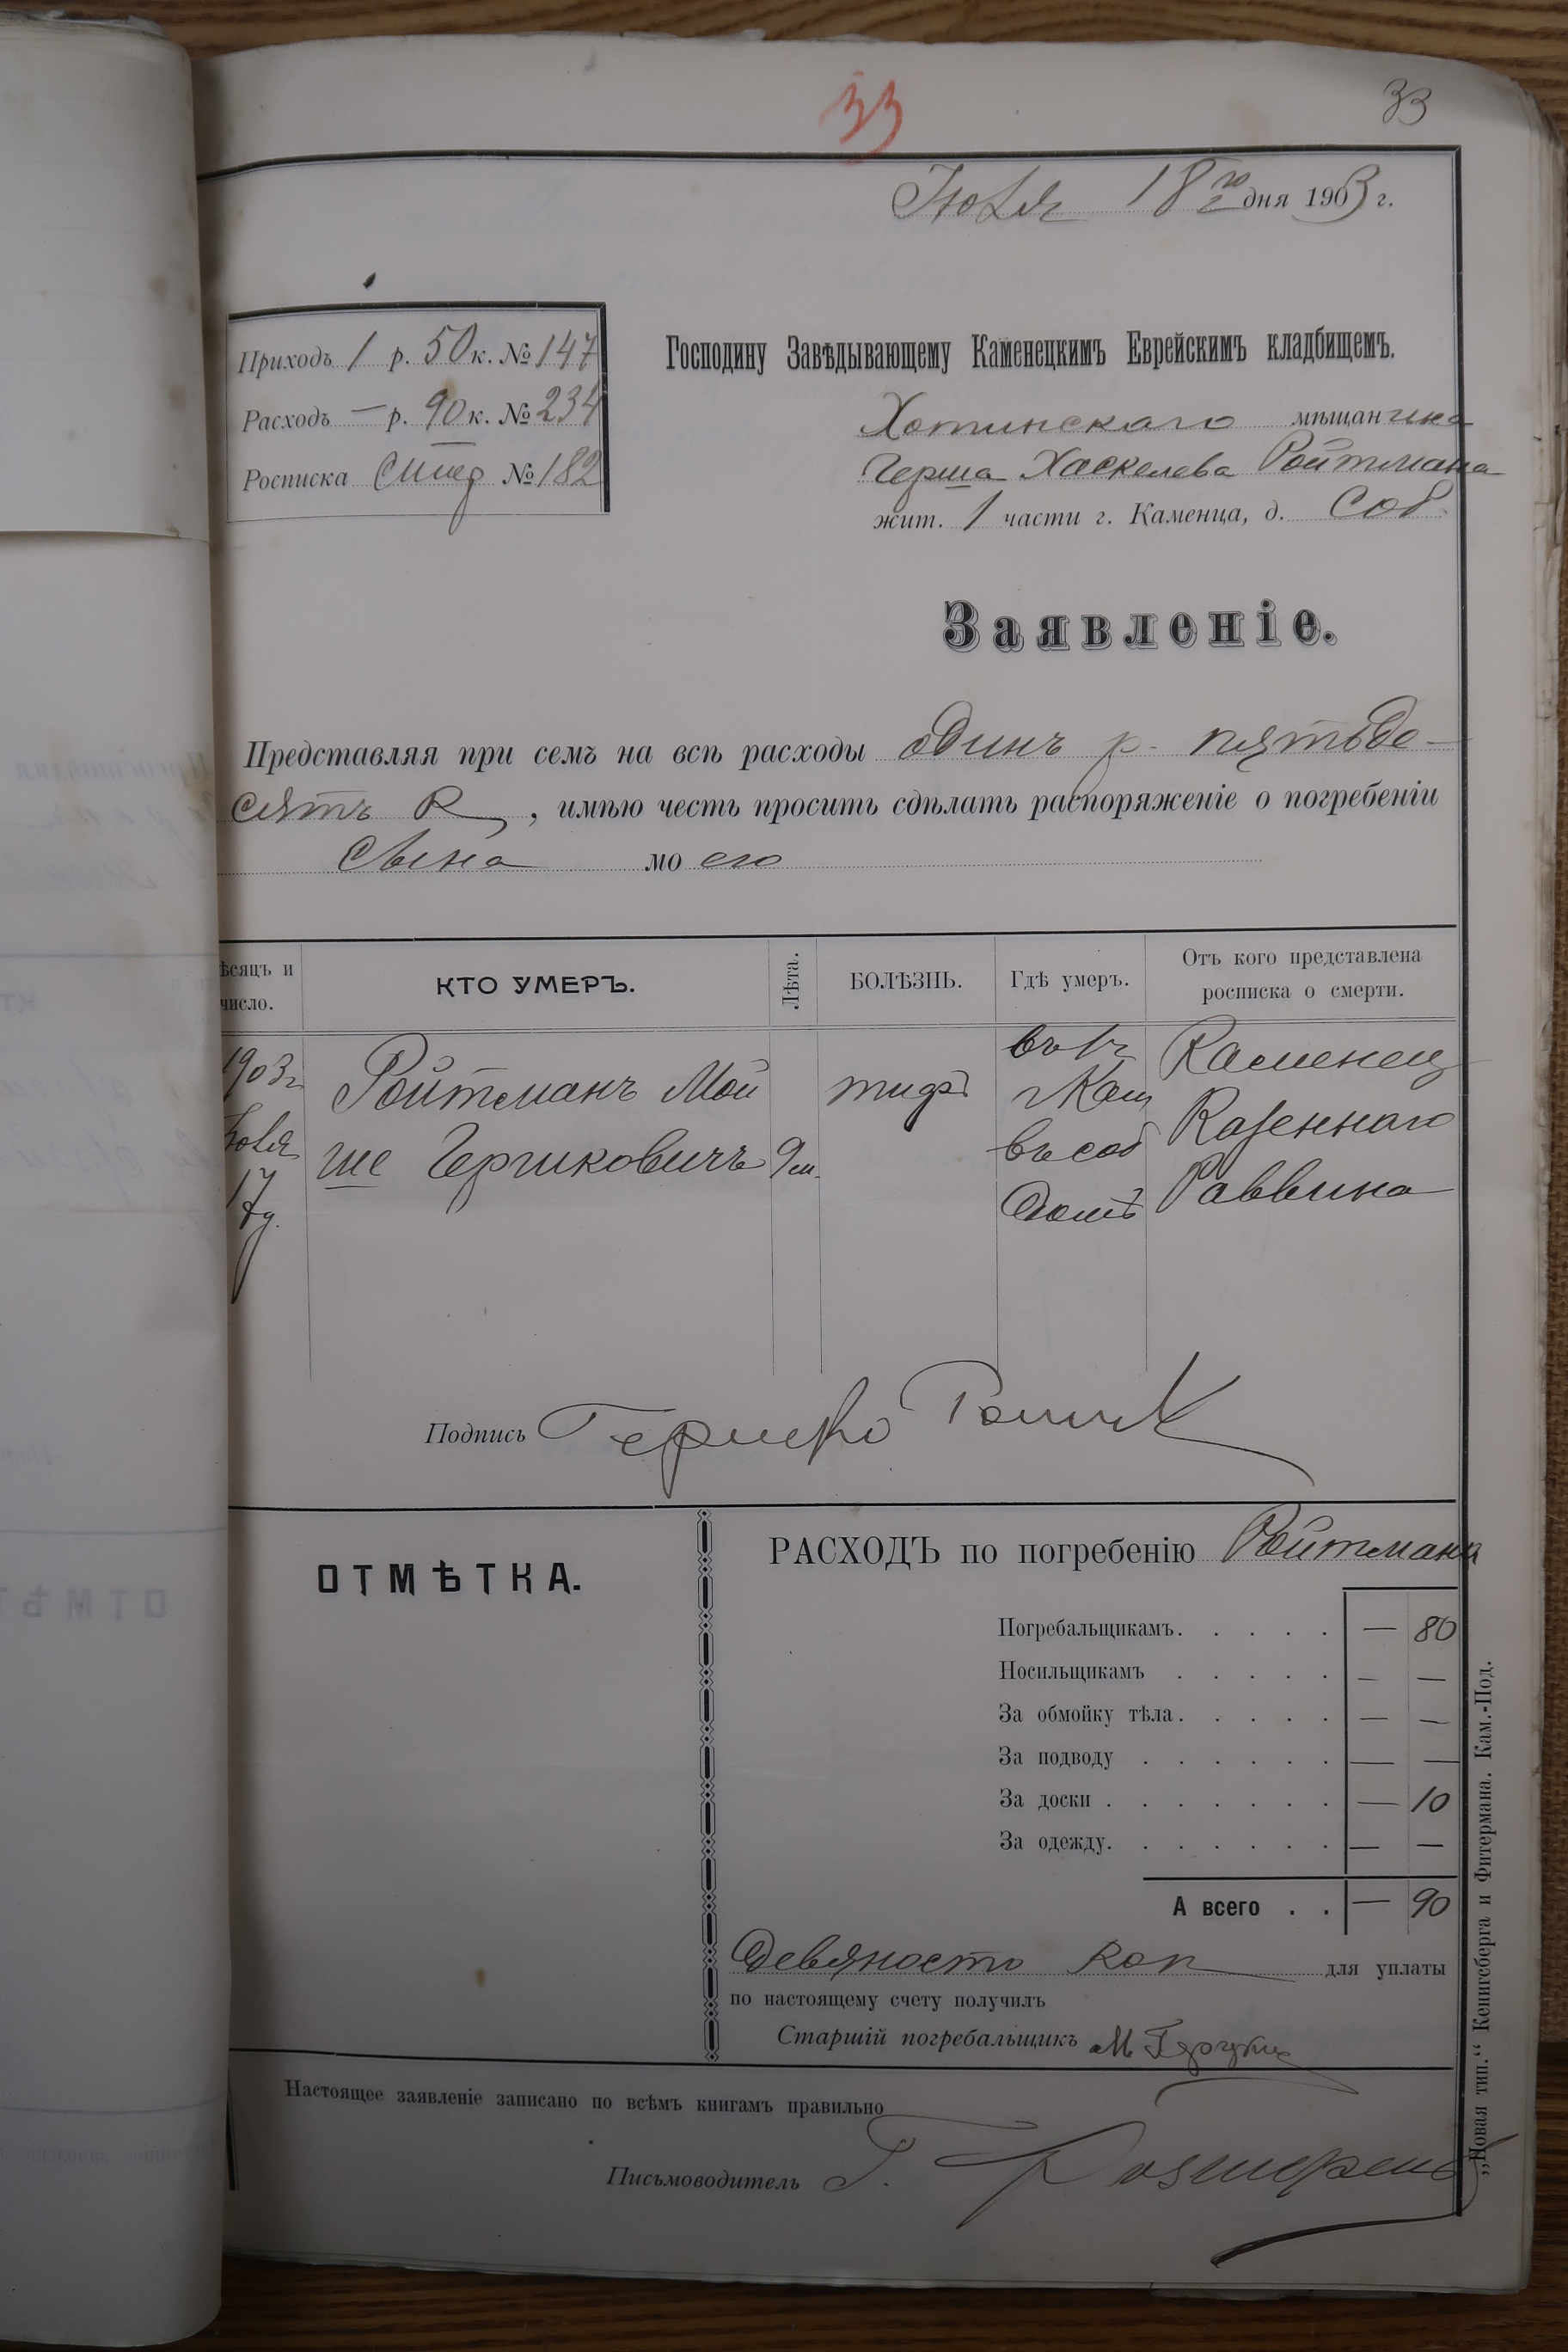 33
33
Іюля 18го дня 1903 г.
Приходъ 1 р. 50 к. № 147
Расходъ — р. 90 к. № 234
Росписка смер № 182
Господину Завѣдывающему Каменецкимъ Еврейскимъ кладбищемъ.
Хотинскаго мѣщанина
Герша Хаскелева Ройтмана
жит. 1 части г. Каменца, д. Соб.
Заявленіе.
Представляя при семъ на всѣ расходы одинъ р. пятьде-
сятъ к , имѣю честь просить сдѣлать распоряженіе о погребеніи
сына моего
ѣсяцъ и число.
КТО УМЕРЪ.
Лѣта.
БОЛѢЗНЬ.
Гдѣ умеръ.
Отъ кого представлена росписка о смерти.
1903 г
Іюля
17 д.
Ройтманъ Мой
ше Гершковичъ
9 м.
тифъ
въ 1 ч
г Кам
въ соб
домѣ
Каменец
Казеннаго
Раввина
Подпись Гершко
ОТМѢТКА.
РАСХОДЪ по погребенію Ройтмана
Погребальщикамъ. . . . . — 80
Носильщикамъ . . . . . — —
За обмойку тѣла. . . . . — —
За подводу . . . . . . — —
За доски . . . . . . . — 10
За одежду. . . . . . . — —
А всего . . — 90
Девяносто коп для уплаты
по настоящему счету получилъ
Старшій погребальщикъ М
Настоящее заявленіе записано по всѣмъ книгамъ правильно
Письмоводитель Г.
„Новая тип.“ Кенигсберга и Фитермана. Кам.-Под.